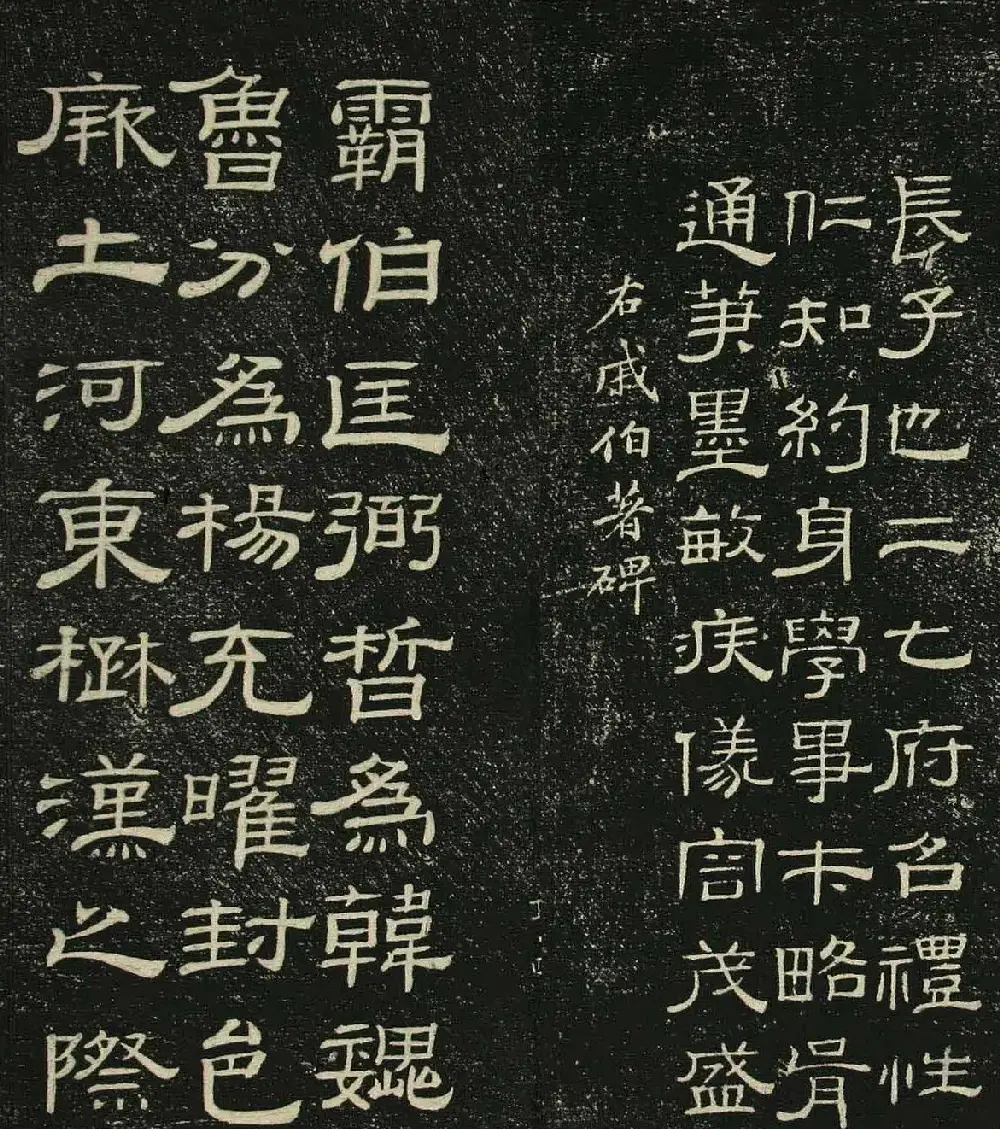 長子也二七府名禮性
仁知約身學事卡略肯
通英墨敏疾儀容茂盛
右戚伯著碑
霸伯匡弼晢為韓魏
魯分為楊充曜封邑
厥土河東楙漢之際